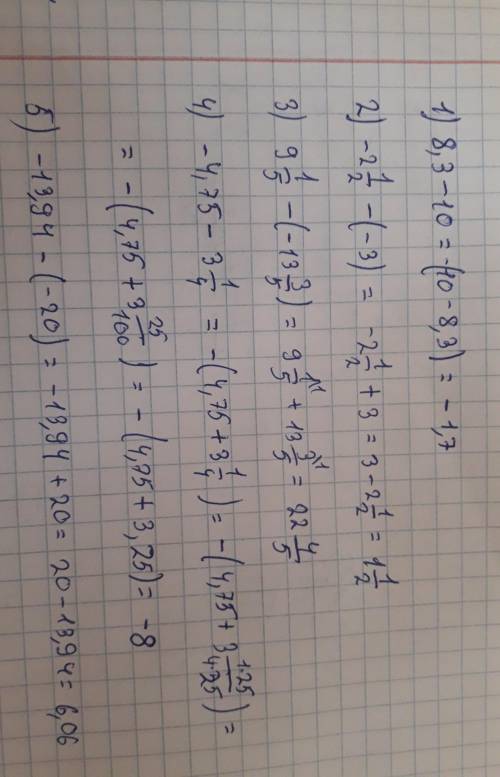 1) 8,3 - 10 = -(10 - 8,3) = - 1,7
2) -2 1/2 - (-3) = -2 1/2 + 3 = 3 - 2 1/2 = 1 1/2
3) 9 1/5 - (-13 3/5) = 9 1/5 + 13 3/5 = 22 4/5
4) -4,75 - 3 1/4 = -(4,75 + 3 1/4) = -(4,75 + 3 1·25/4·25) =
= -(4,75 + 3 25/100) = -(4,75 + 3,25) = -8
5) -13,94 - (-20) = -13,94 + 20 = 20 - 13,94 = 6,06